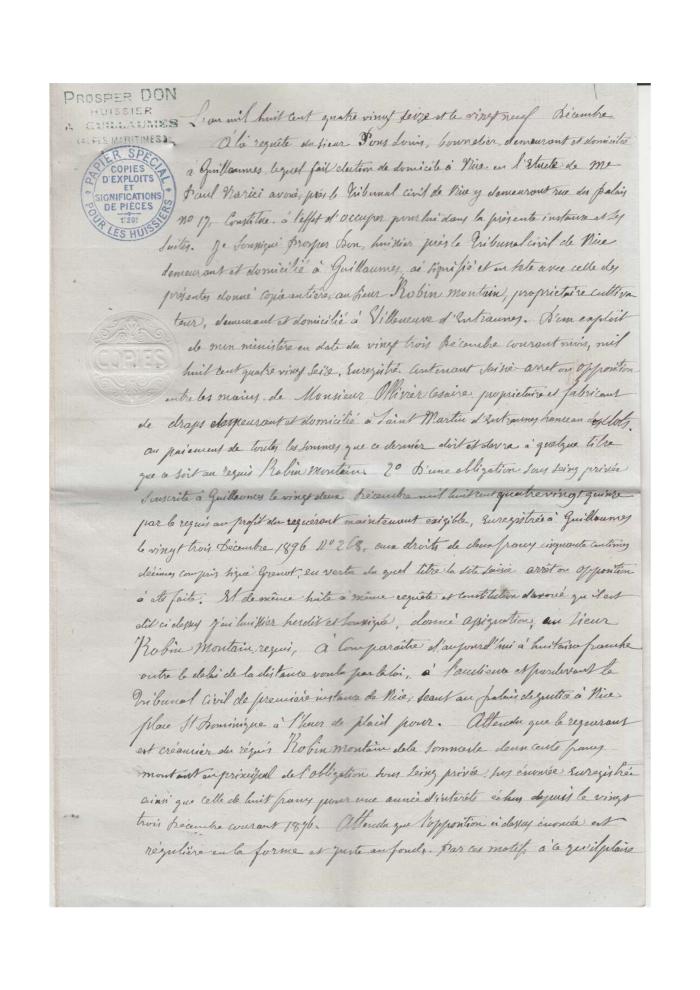 PROSPER DON
HUISSIER
A GUILLAUMES
(ALPES MARITIMES)
PAPIER SPÉCIAL
COPIES
D'EXPLOITS
ET
SIGNIFICATIONS
DE PIÈCES
POUR LES HUISSIERS
COPIES
L'an mil huit cent quatre vingt seize et le vingt neuf Décembre
À la requête du sieur Pons Louis, demeurant et domicilié
à Guillaumes, lequel fait élection de domicile à Nice en l'Etude de Me
Paul avoué, près le Tribunal civil de Nice y demeurant rue du Palais
no 17, Constitue à l'effet d'occuper pour lui dans la présente instance et ses
suites. Je soussigné Prosper Don, huissier près le Tribunal civil de Nice
demeurant et domicilié à Guillaumes, ai signifié et en tete avec celle des
présentes donné copie entière, au sieur Robin montain, propriétaire cultiva
teur, demeurant et domicilié à Villeneuve d'Entraunes. D'un exploit
de mon ministère en date du vingt trois Décembre courant mois, mil
huit cent quatre vingt seize, Enregistré. Contenant saisie arret ou opposition
entre les mains de Monsieur Ollivier Césaire, propriétaire et fabricant
de draps demeurant et domicilié à Saint Martin d'Entraunes hameau
au paiement de toutes les sommes que ce dernier doit et devra à quelque titre
que ce soit au requis Robin montain 2o D'une obligation sous seing privée
Suscrite à Guillaumes le vingt deux Décembre mil huit cent quatre vingt quinze
par le requis au profit du requérant maintenant exigible, Enregistrée à Guillaumes
le vingt trois Décembre 1896 No 268, aux droits de deux francs cinquante centimes
décimes compris signé en vertu du quel titre la dite saisie arrêt ou opposition
a été faite. Et de même suite à même requête et constitution d'avoué qu'il est
dit ci dessus j'ai huissier susdit et soussigné, donné assignation, au sieur
Robin Montain, requis, À Comparaître d'aujourd'hui à huitaine franche
outre le délai de la distance voulu par la loi, à l'audience et pardevant le
Tribunal Civil de première instance de Nice, séant au palais de justice à Nice
place St Dominique à l'heure de plaid pour. Attendu que le requérant
est créancier du réquis Robin montain de la somme de deux cents francs
montant au principal de l'obligation sous seing privée, sus énoncée Enregistrée
ainsi que celle de huit francs pour une année d'intérêts échus depuis le vingt
trois Décembre courant 1896. Attendu que l'opposition ci dessus énoncée est
régulière en la forme et juste au fonds. Par ces motifs à ce qu'il plaise